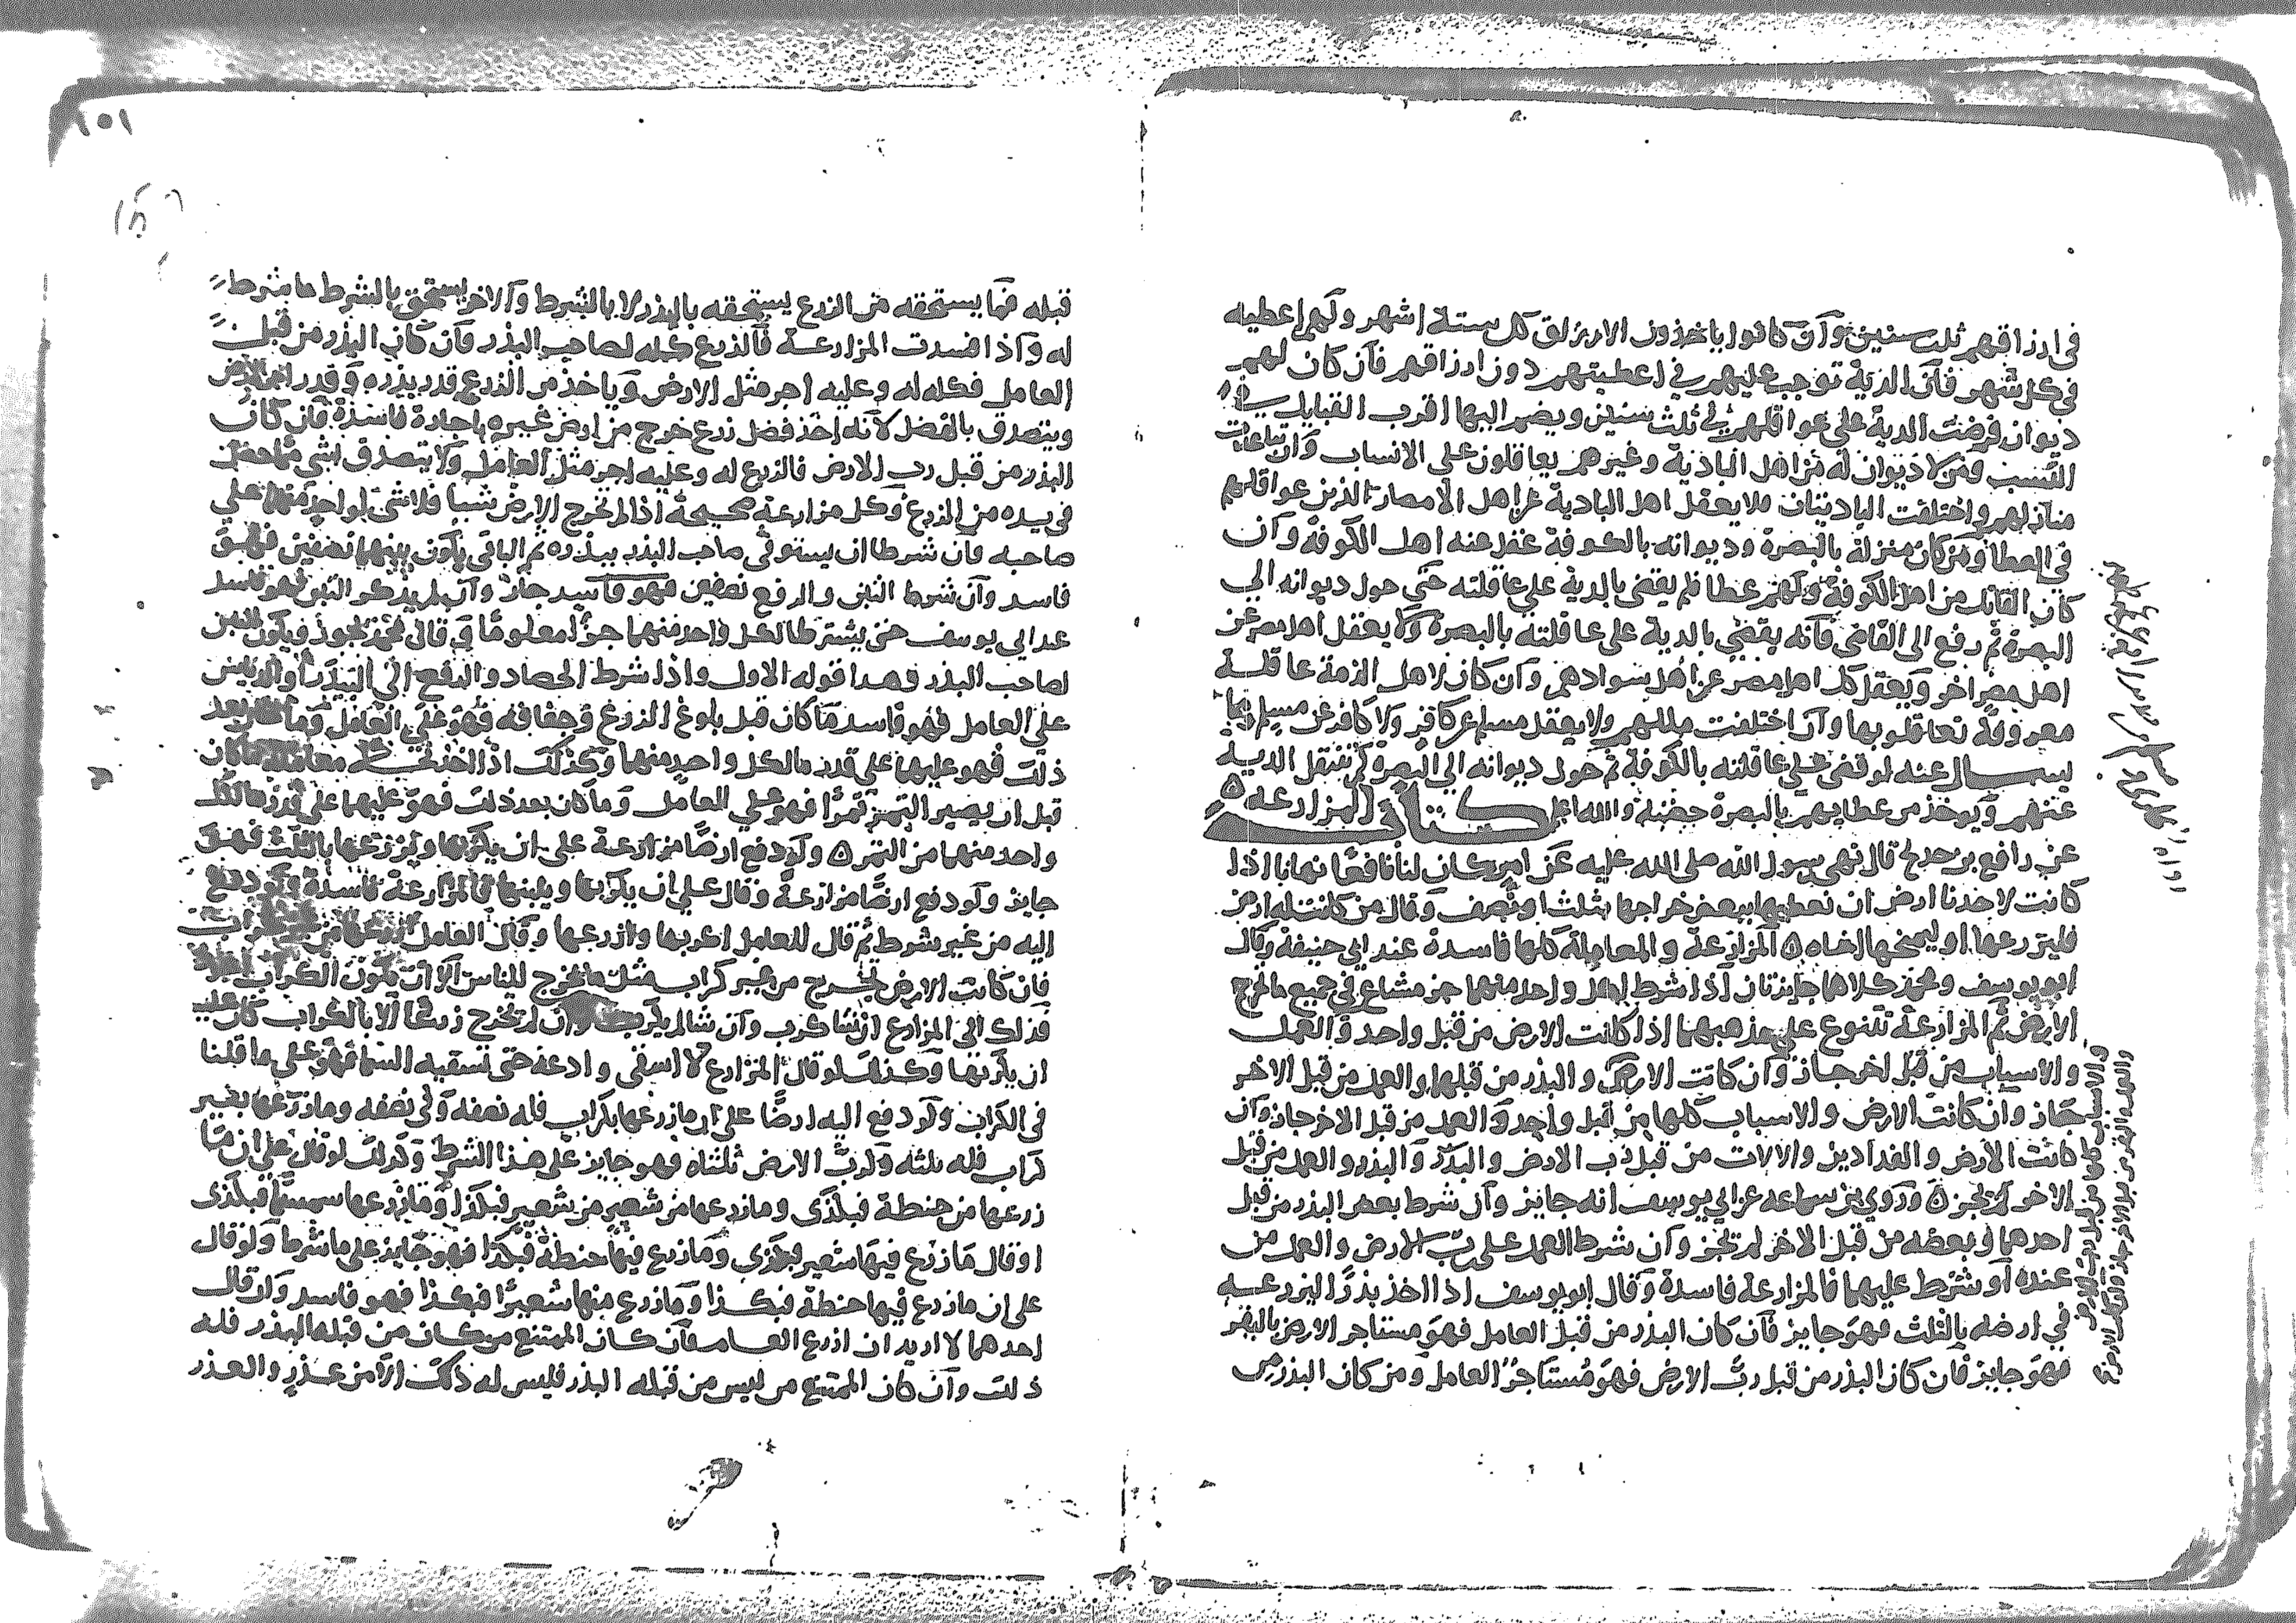 في ارزاقهم ثلث سنين وان كانوا ياخذون الارزاق كل ستة اشهر ولهم اعطيه
في كل شهر فان الدية توجب عليهم في اعطيتهم دون ارزاقهم فان كان لهم
ديوان فرضت الدية على عواقلهم في ثلث سنين ويضم اليها اقرب القبايل في
النسب ومن لا ديوان له من اهل البادية وغيرهم يعاقلون على الانساب وان تباعدت
منازلهم واختلفت الباديتان ولا يعقل اهل البادية عن اهل الامصار الذين عواقلهم
في العطا ومن كان منزله بالبصرة وديوانه بالكوفة عقل عنه اهل الكوفة وان
كان القاتل من اهل الكوفة ولهم عطا فلم يقض بالدية على عاقلته حتى حول ديوانه الى
البصرة ثم رفع الى القاضي فانه يقضي بالدية على عاقلته بالبصرة ولا يعقل اهل مصر عن
اهل مصر اخر ويعقل كل اهل مصر عن اهل سوادهم وان كان لاهل الذمة عاقلة
معروفة تعاقلوا بها وان اختلفت مللهم ولا يعقل مسلم عن كافر ولا كافر عن مسلم
يسال عنه لو قضى على عاقلته بالكوفة ثم حول ديوانه الى البصرة لم تنتقل الدية
عنهم ويوخذ من عطايهم بالبصرة حصته والله اعلم كتاب المزارعة
عن رافع بن خديج قال نهى رسول الله صلى الله عليه عن امر كان لنا نافعا نهانا اذا
كانت لاحدنا ارض ان نعطيها ببعض خراجها بثلث او نصف وقال من كانت له ارض
فليزرعها او ليمنحها اخاه المزارعة والمعاملة كلها فاسدة عند ابي حنيفة وقال
ابو يوسف ومحمد كلاهما جايزتان اذا شرط لكل واحد منهما جز مشاع في جميع ما تخرج
الارض ثم المزارعة تتنوع على مذهبهما اذا كانت الارض من قبل واحد والعمل
والاسباب من قبل اخر جاز وان كانت الارض والبذر من قبلها والعمل من قبل الاخر
جاز وان كانت الارض والاسباب كلها من قبل واحد والعمل من قبل الاخر جاز وان
كانت الارض والفدادين والالات من قبل رب الارض والبقر والبذر والعمل من قبل
الاخر لم تجز وروي بن سماعه عن ابي يوسف انه جايز وان شرط بعض البذر من قبل
احدهما وبعضه من قبل الاخر لم تجز وان شرط العمل على رب الارض والعمل من
عنده او شرط عليهما فالمزارعة فاسدة وقال ابو يوسف اذا اخذ بذرا ليزرعه
في ارضه بالثلث فهو جايز فان كان البذر من قبل العامل فهو مستاجر الارض بالبذر
فهو جايز فان كان البذر من قبل رب الارض فهو مستاجر العامل ومن كان البذر من
١٥١
قبله فما يستحقه من الزرع يستحقه بالبذر لا بالشرط والاخر يستحق بالشرط ما شرط
له واذا فسدت المزارعة فالزرع كله لصاحب البذر فان كان البذر من قبل
العامل فكله له وعليه اجر مثل الارض وياخذ من الزرع قدر بذره وقدر اجر الارض
ويتصدق بالفضل لانه اخذ فضل زرع خرج من ارض غيره باجارة فاسدة فان كان
البذر من قبل رب الارض فالزرع له وعليه اجر مثل العامل ولا يتصدق بشي مما حصل
في يده من الزرع وكل مزارعة صحيحة اذا لم تخرج الارض شيا فلا شي لواحد منهما على
صاحبه فان شرطا ان يستوفي صاحب البذر بذره ثم الباقي يكون بينهما نصفين فهو
فاسد وان شرط التبن والرفع نصفين فهو جاز وان لم يذكر التبن فهو فاسد
عند ابي يوسف حتى يشترطا لكل واحد منهما جزا معلوما وقال محمد تجوز ويكون التبن
لصاحب البذر وهذا قوله الاول واذا شرط الحصاد والرفع الى البيدر والدياس
على العامل فهو فاسد ما كان قبل بلوغ الزرع وجفافه فهو على العامل وما كان بعد
ذلك فهو عليهما على قدر ما لكل واحد منهما وكذلك اذا اخذ معاملة ما كان
قبل ان يصير الثمر تمرا فهو على العامل وما كان بعد ذلك فهو عليهما على قدر ما لكل
واحد منهما من الثمر ولو دفع ارضا مزارعة على ان يكربها ويزرعها بالثلث فهو
جايز ولو دفع ارضا مزارعة وقال على ان يكربها ويثنيها فالمزارعة فاسدة ولو دفع
اليه من غير شرط ثم قال للعامل اكربها وازرعها وقال العامل ازرعها من غير كراب
فان كانت الارض تخرج من غير كراب مثل ما تخرج للناس الا ان يكون الكراب اجود
فذلك الى المزارع ان شا كرب وان شا لم يكرب وان لم تخرج زرعا الا بالكراب كان عليه
ان يكربها وكذلك لو قال المزارع لا اسقي وادعه حتى تسقيه السما فهو على ما قلنا
في الكراب ولو دفع اليه ارضا على ان ما زرعها بكراب فله نصفه ولي نصفه وما زرعها بغير
كراب فله ثلثه ولرب الارض ثلثاه فهو جايز على هذا الشرط وكذلك لو قال على ان ما
زرعها من حنطة فبكذى وما زرعها من شعير فبكذا وما زرعها سمسما فبكذى
او قال ما زرع فيها شعير فبكذى وما زرع فيها حنطة فبكذا فهو جايز على ما شرطا ولو قال
على ان ما زرع فيها حنطة فبكذا وما زرع منها شعيرا فبكذا فهو فاسد وان قال
احدهما لا اريد ان ازرع العام فان كان الممتنع من كان من قبله البذر فله
ذلك وان كان الممتنع من ليس من قبله البذر فليس له ذلك الا من عذر والعذر